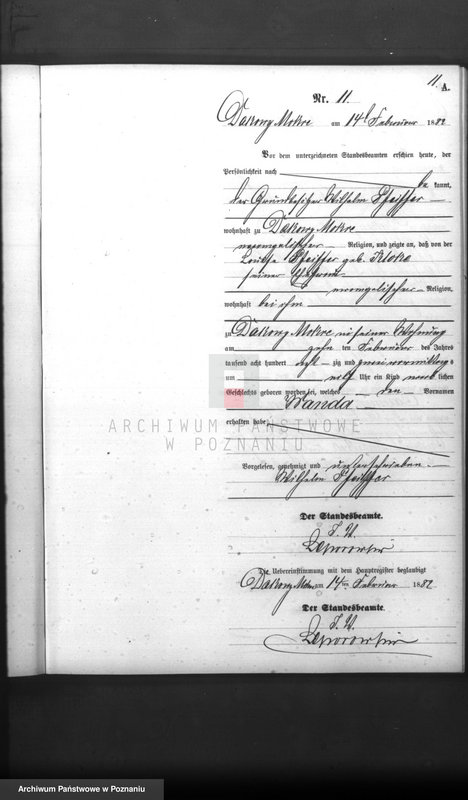 11.
A.
Nr. 11.
Dakowy Mokre am 14t Februar 1882
Vor dem unterzeichneten Standesbeamten erschien heute, der
Persönlichkeit nach
be kannt,
der Grundbesitzer Wilhelm Pfeiffer
wohnhaft zu Dakowy Mokre
evangelischer Religion, und zeigte an, daß von der
Louise Pfeiffer geb. Kloke
seiner Ehefrau
evangelischer Religion,
wohnhaft bei ihm
zu Dakowy Mokre in seiner Wohnung
am zehn ten Februar des Jahres
tausend acht hundert acht zig und zwei vormittags
um elf Uhr ein Kind weib lichen
Geschlechts geboren worden sei, welches den Vornamen
Wanda
erhalten habe
ARCHIWUM PAŃSTWOWE
W POZNANIU
Vorgelesen, genehmigt und unterschrieben.
Wilhelm Pfeiffer
Der Standesbeamte.
I. V.
Die Uebereinstimmung mit dem Hauptregister beglaubigt
Dakowy Mokre am 14ten Februar 1882
Der Standesbeamte.
I. V.
Archiwum Państwowe w Poznaniu